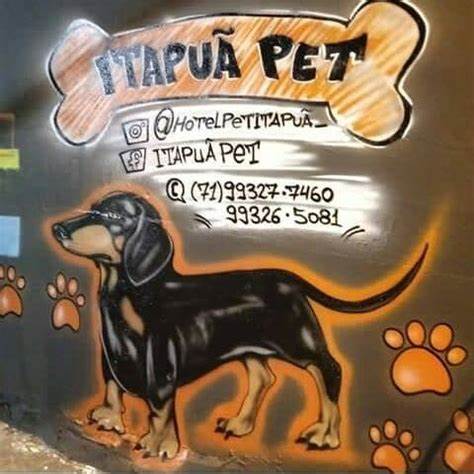 ITAPUÃ PET
@HOTELPETITAPUÃ_
ITAPUÃ PET
(71)99327-7460
99326-5081